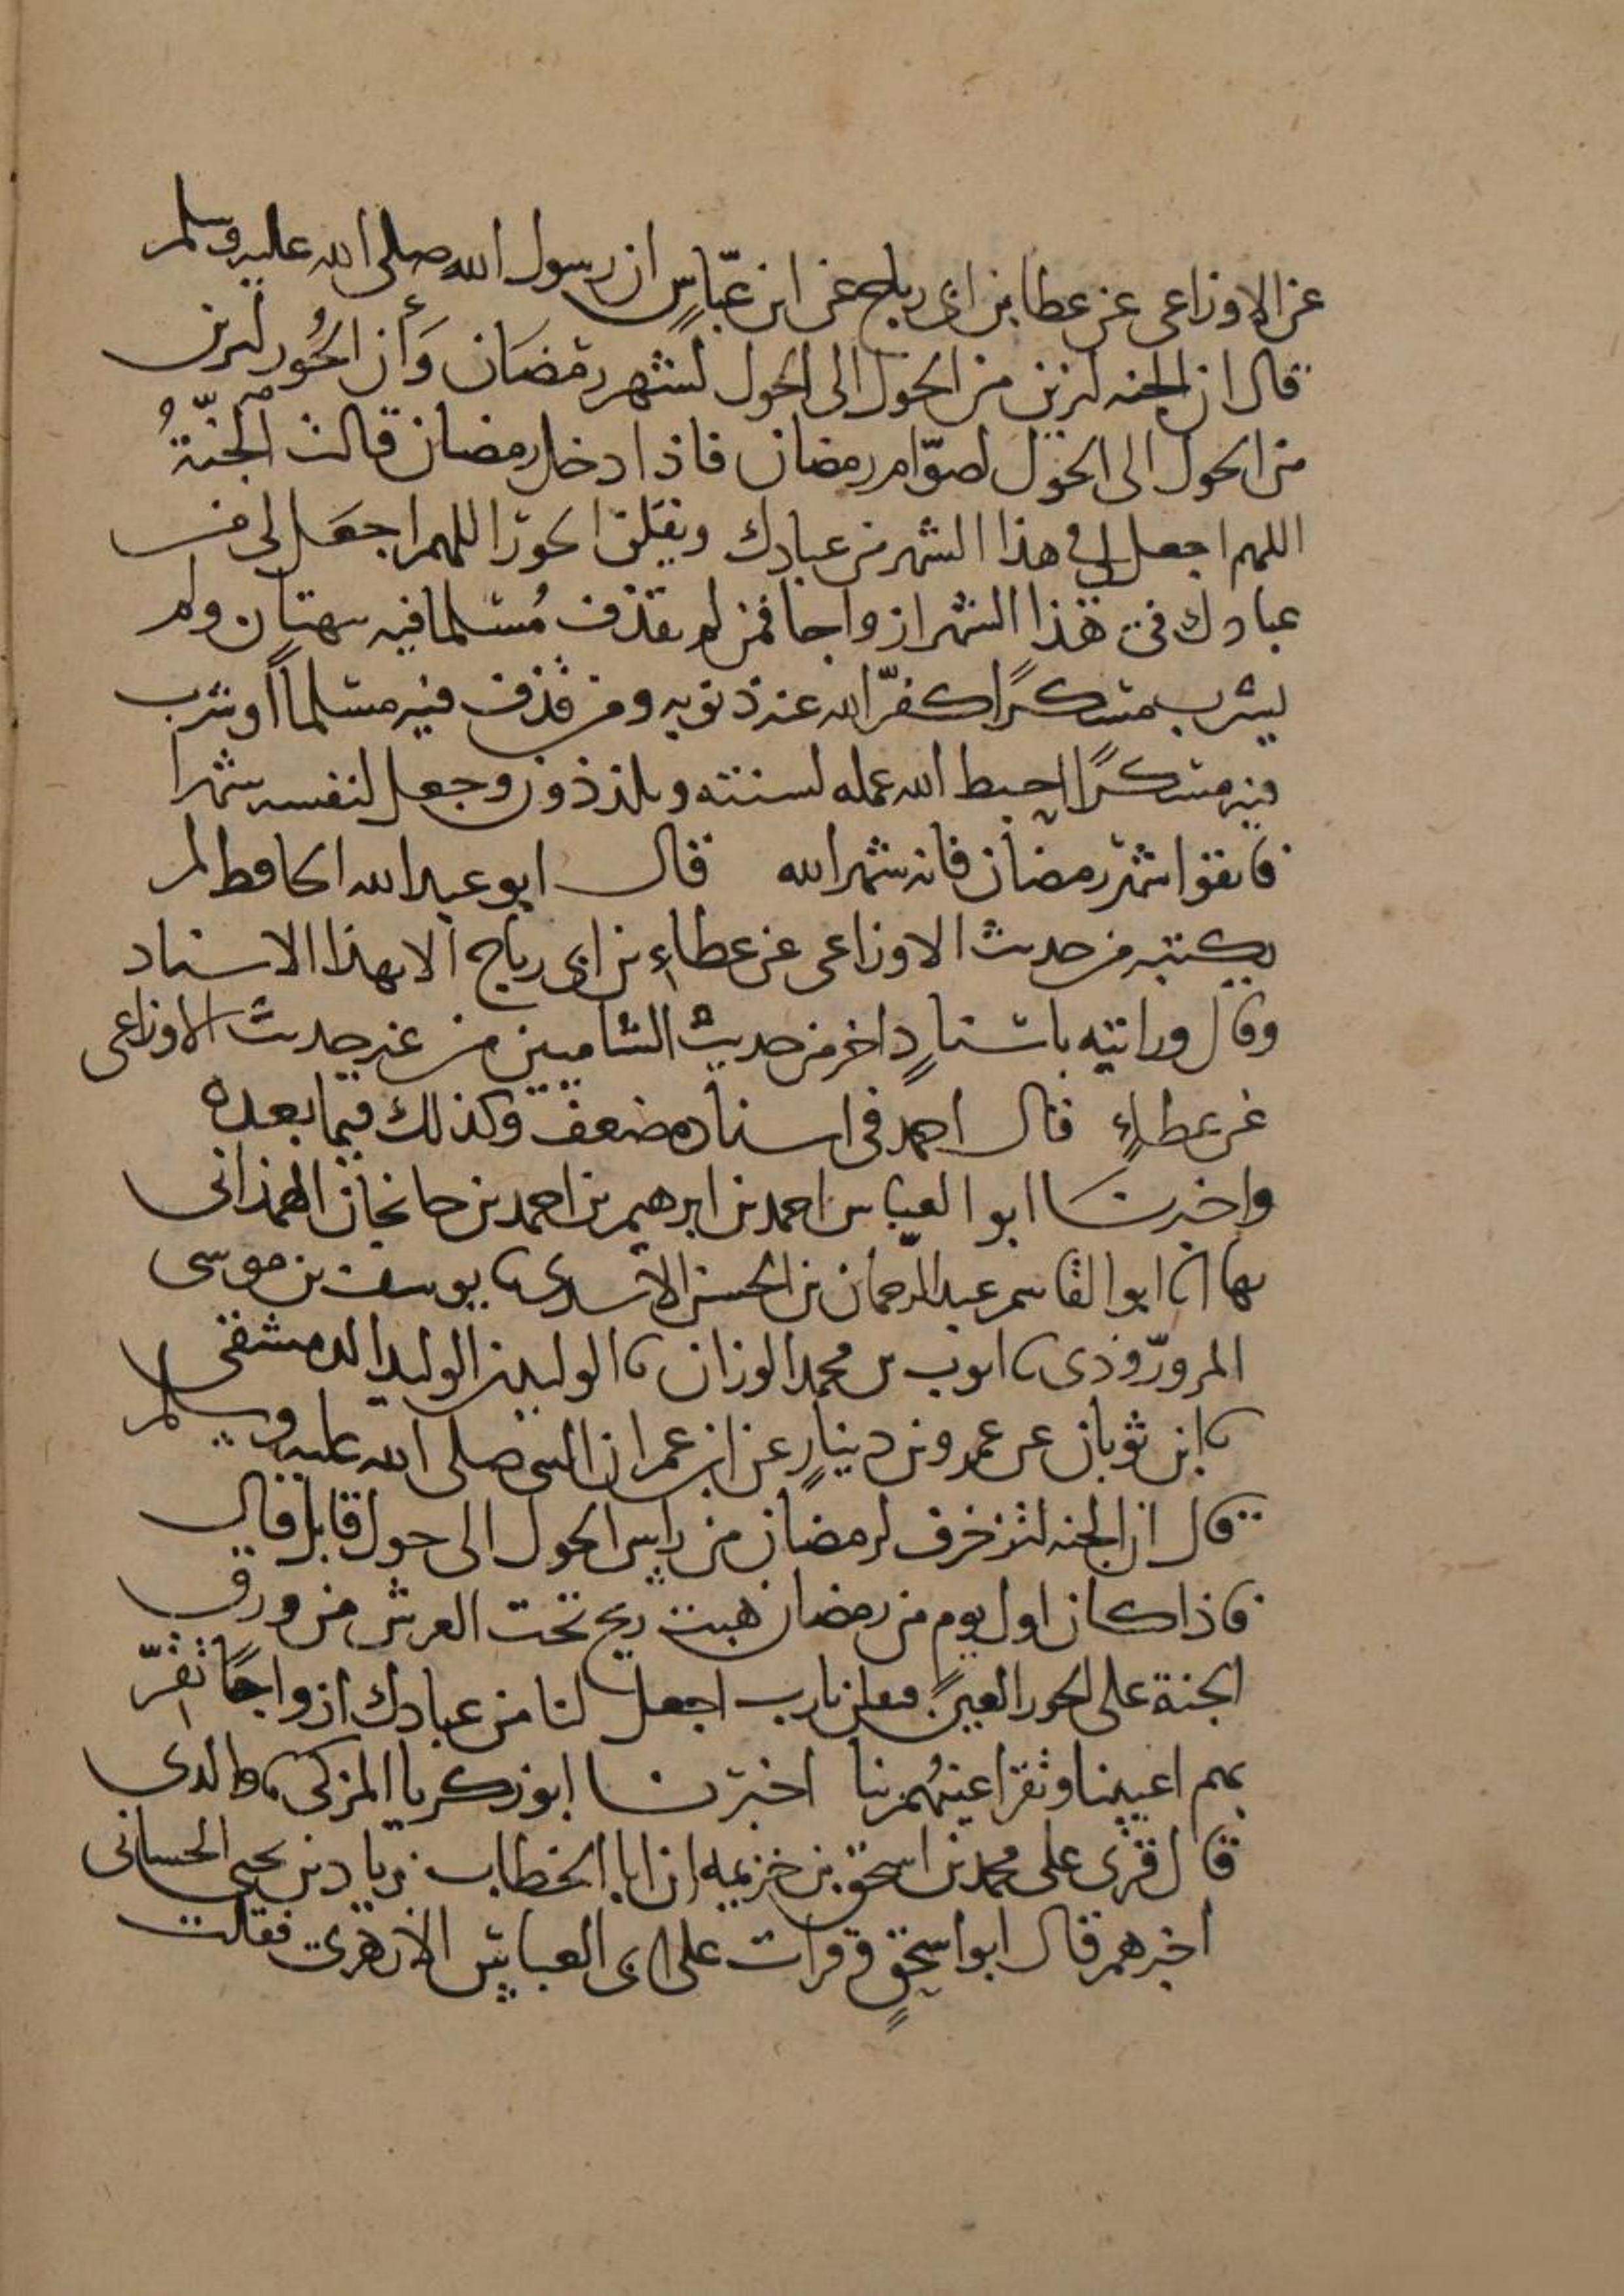 عن الاوزاعى عن عطا بن ابى رباح عن ابن عبّاسٍ ان رسول الله صلى الله عليه وسلم
قال ان الجنه لتزين من الحول الى الحول لشهر رمضان وَأن الحُور لتزين
من الحول الى الحول لصوّام رمضان فاذا دخل رمضان قالت الجنّةُ
اللهم اجعل لى فى هذا الشهر من عبادك ويقلن الحور اللهم اجعَل لى من
عبادك فى هذا الشهر ازواجا فمن لم يقذف مُسلما فيه ببهتان ولم
يشرب مسكرًا كفّر الله عنه ذنوبه ومن قذف فيه مسلماً او شرب
فيه مسكرًا احبط الله عمله لسنته وىلذذون وجعل لنفسه شهرا
فاتقوا شهر رمضان فانه شهر الله قال ابو عبد الله الحافظ لم
يكتبه من حديث الاوزاعى عن عطاءِ بن ابى رباح الا بهذا الاسناد
وقال ورايته باسنادٍ اخر من حديث الشاميين من غير حديث الاوزاعى
عن عطاءٍ قال احمد فى اسناده ضعف وكذلك فيما بعده
واخبرنا ابو العباس احمد بن ابرهيم بن احمد بن جانجان الهمذانى
بها انا ابو القاسم عبد الرحمان بن الحسن الاسدى نا يوسف بن موسى
المروروذى نا ايوب بن محمد الوزان نا الوليد بن الوليد الدمشقى
نا ابن ثوبان عن عمرو بن دينارٍ عن ابن عمر ان النبى صلى الله عليه وسلم
قال ان الجنه لتزخرف لرمضان من راس الحول الى حول قابل قال
فاذا كان اول يوم من رمضان هبت ريح تحت العرش من ورق
الجنة على الحور العين فيقلن يارب اجعل لنا من عبادك ازواجًا تقرّ
بهم اعيننا وتقر اعينهُم بنا اخبرنا ابو زكريا المزكى نا والدى
قال قرى على محمد بن اسحق بن خزيمه ان ابا الخطاب زياد بن يحيى الحسانى
اخبرهم قال ابو اسحقٍ وقرات على ابى العباس الازهرى فقلت